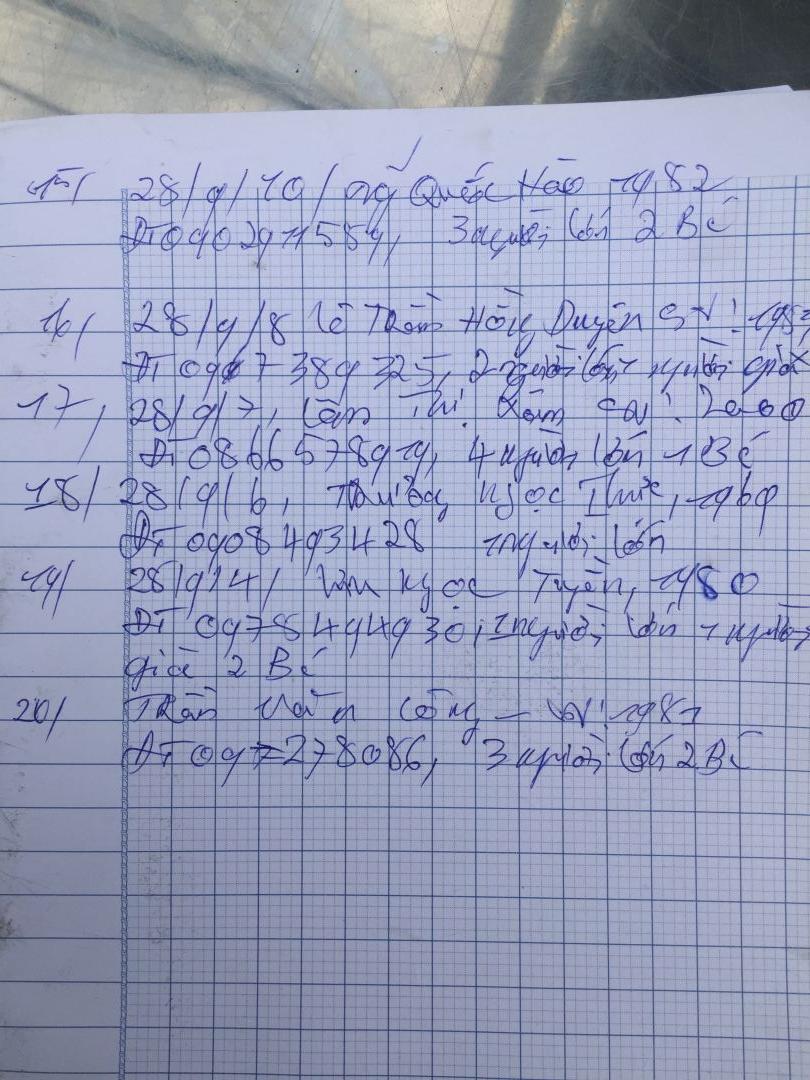 15/ 28/9/10/ Ngô Quốc Hào 1982
ĐT 0902911589, 3 người lớn 2 Bé
16/ 28/9/8 Lê Trần Hồng Duyên SN:
ĐT 2 người lớn 1 người già
17, 28/9/7, Lâm Thị SN: 2000
ĐT 0866578919, 4 người lớn 1 Bé
18/ 28/9/6, Ngọc 1969
ĐT 0908493428 người lớn
19/ 28/9/4/ Ngọc Tuyền, 1980
ĐT người lớn 1 người
già 2 Bé
20/ Trần Văn Công – SN: 1981
ĐT 097278086, 3 người lớn 2 Bé